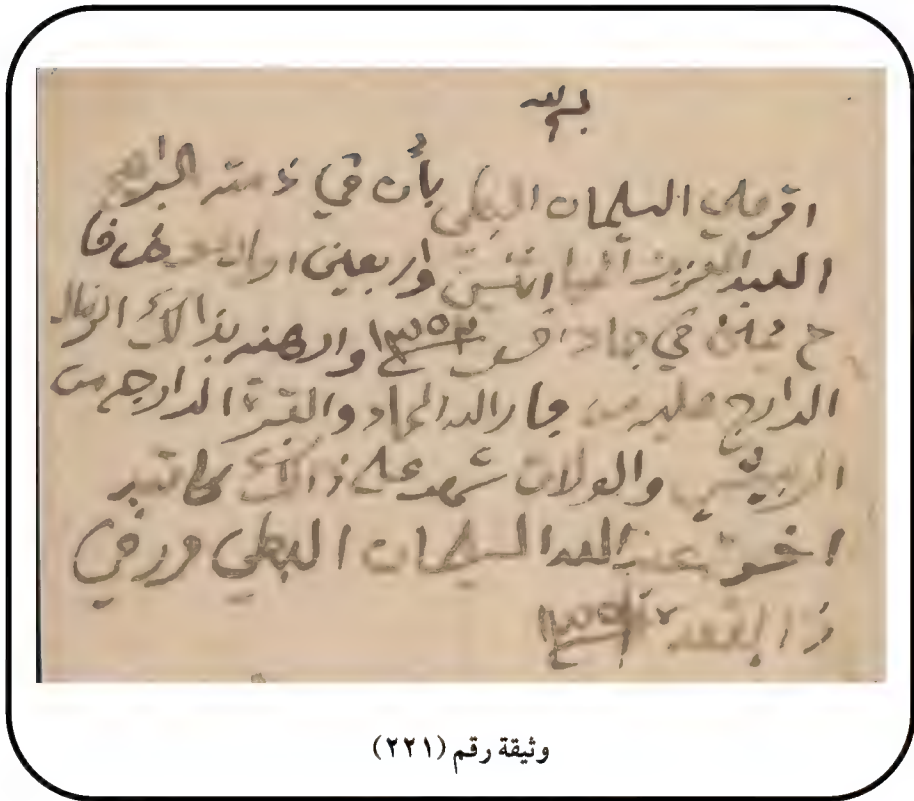 بسم الله
اقر علي السليمان البطي بأن في ذمته البراهيم
العبد العزيز اثنين واربعين اريل
في جماد اخر ١٣٥٢ وارهنه بذالك الزمال
الدارج عليه من جار الله الحماد والبقرة الدارجه من
والولات شهد على ذالك كاتبه
اخوه عبدالله السليمان البطي حرر في
ذا القعدة
وثيقة رقم (٢٢١)